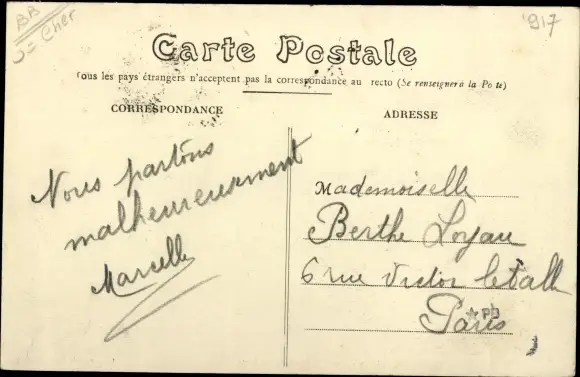 BB
Cher
917
Carte Postale
Tous les pays étrangers n'acceptent pas la correspondance au recto (Se renseigner à la Poste)
CORRESPONDANCE
ADRESSE
Nous partons
malheureusement
Marcelle
Mademoiselle
Berthe Loyau
6 rue Victor Letalle
Paris
pb